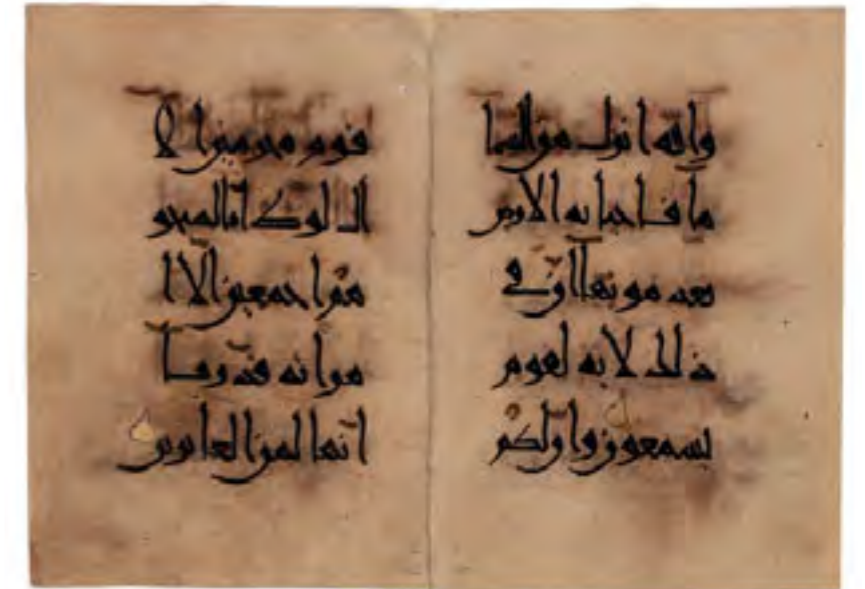 والله انزل من السما
ما فاحيا به الارض
بعد موتها ان في
ذلك لاية لقوم
يسمعون وان لكم
قوم مجرمين الا
ال لوط انا لمنجو
هم اجمعين الا ا
مراته قدرنا
انها لمن الغابرين